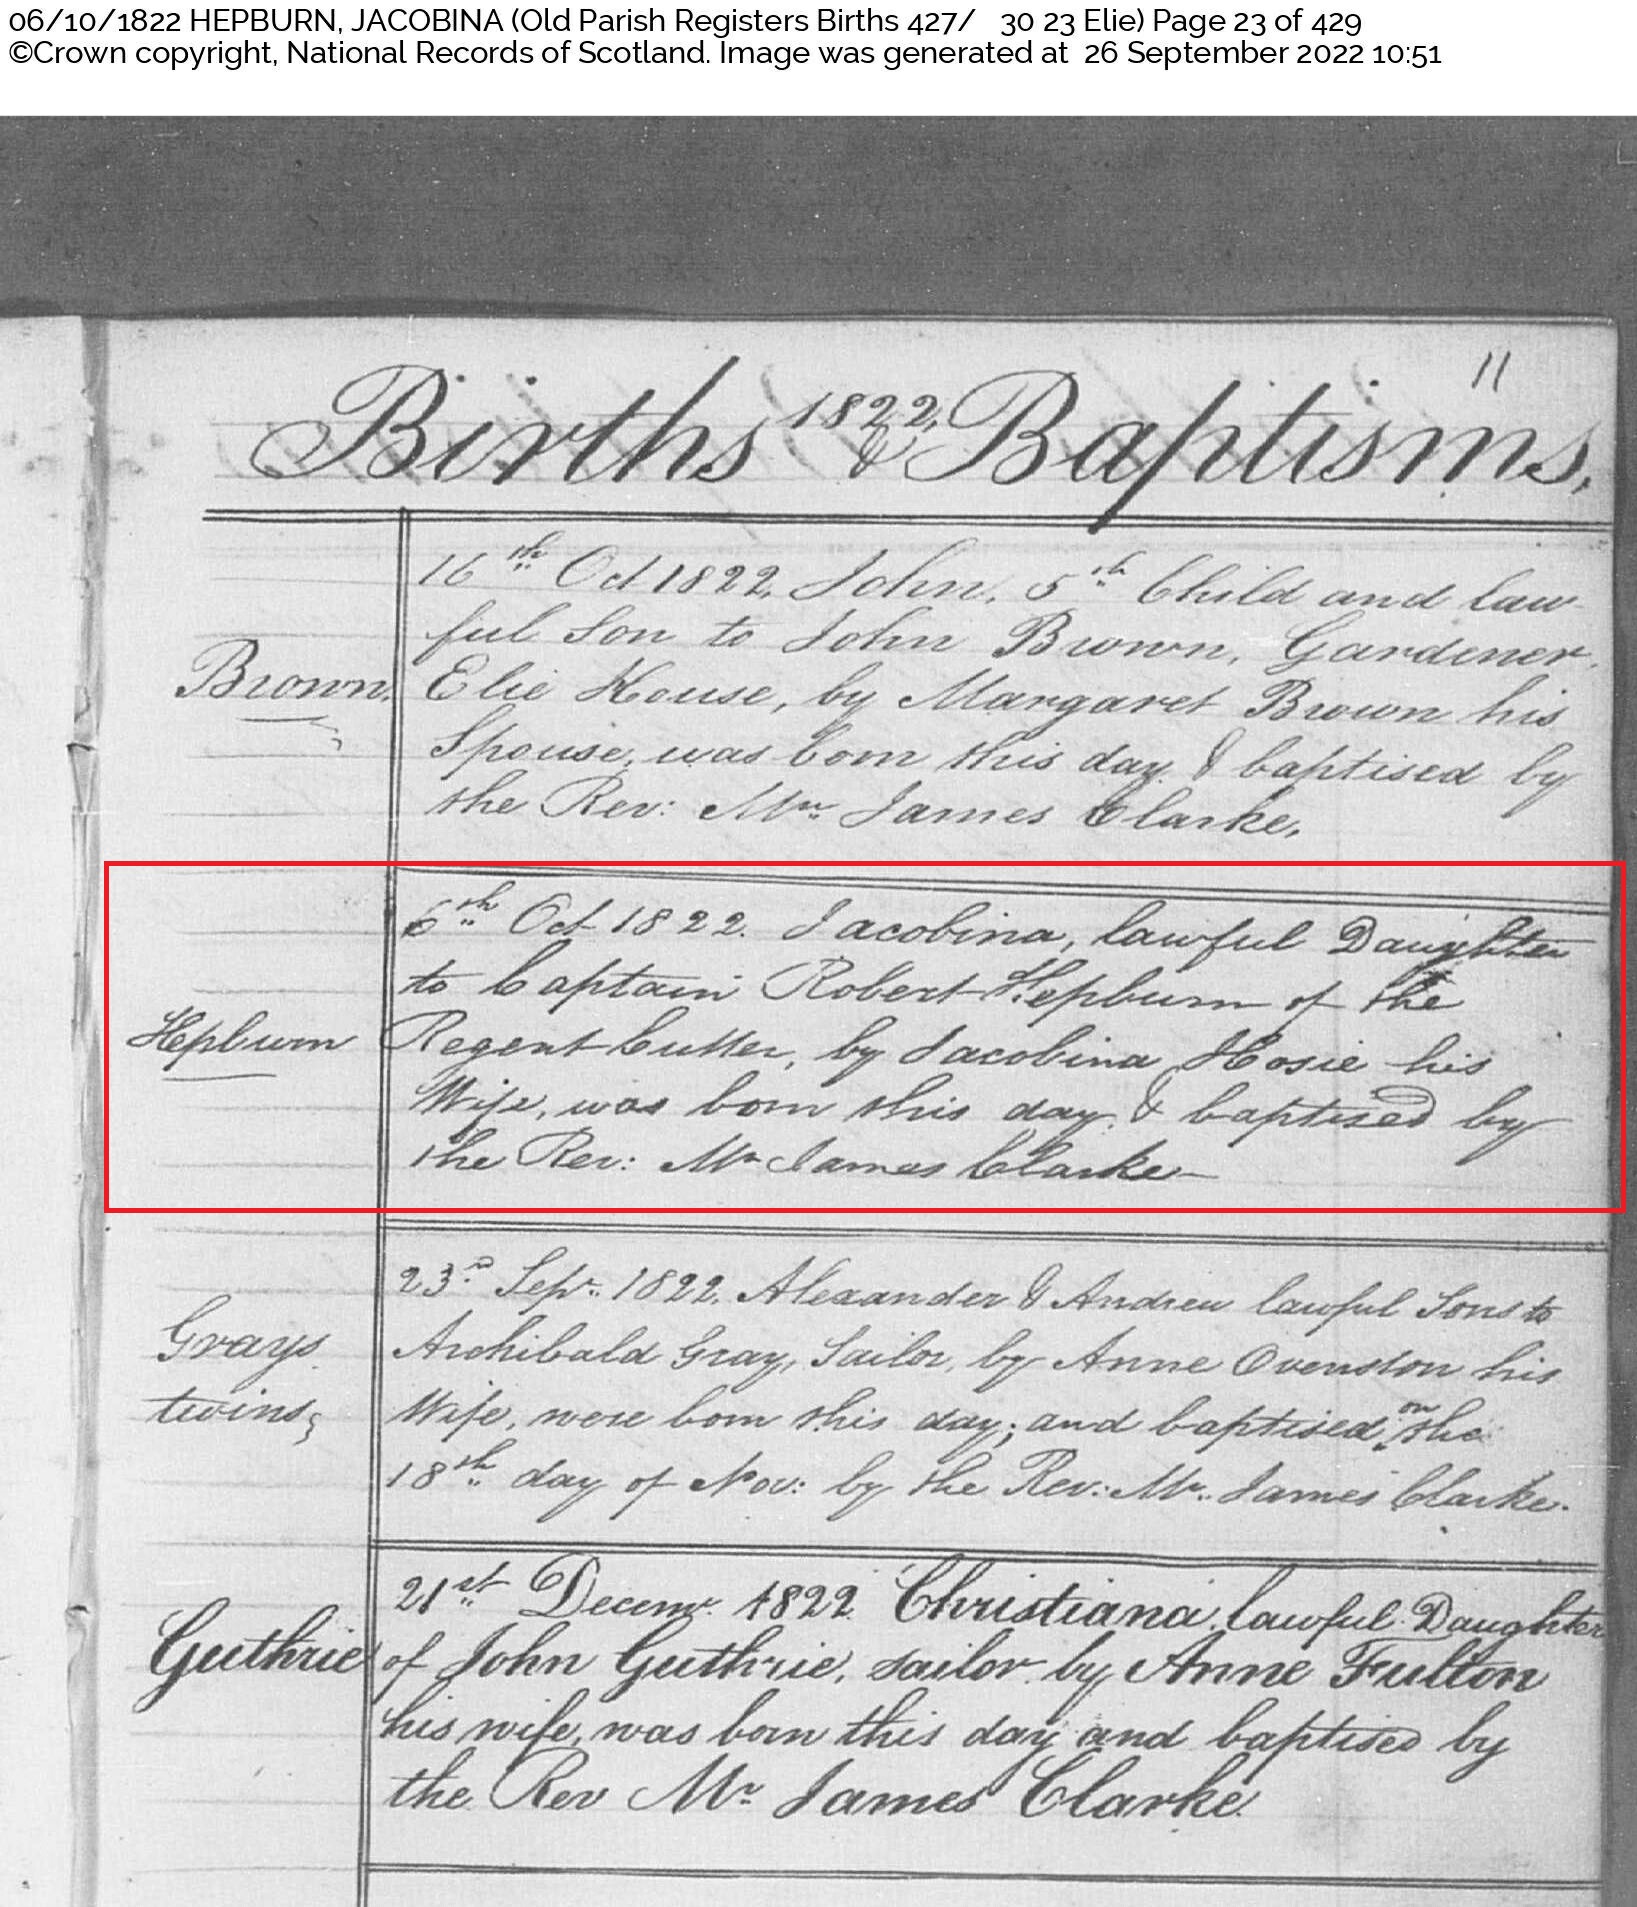 06/10/1822 HEPBURN, JACOBINA (Old Parish Registers Births 427/ 30 23 Elie) Page 23 of 429
©Crown copyright, National Records of Scotland. Image was generated at 26 September 2022 10:51
11
Births 1822, & Baptisms,
16th Oct 1822, John, 5th Child and law
ful Son to John Brown, Gardener,
Brown, Elie House, by Margaret Brown his
Spouse, was born this day, & baptised by
the Rev: Mr James Clarke,
6th Oct 1822. Jacobina, lawful Daughter
to Captain Robert Hepburn of the
Hepburn Regent Cutter, by Jacobina Hosie his
Wife, was born this day, & baptised by
the Rev: Mr James Clarke
23rd Sepr. 1822, Alexander & Andrew lawful Sons to
Grays Archibald Gray, Sailor, by Anne Ovenston his
twins, Wife, were born this day; and baptised on the
18th day of Nov: by the Rev: Mr. James Clarke.
21st Decemr. 1822 Christiana, lawful Daughter
Guthrie of John Guthrie, sailor by Anne Fulton
his wife, was born this day and baptised by
the Rev Mr James Clarke.